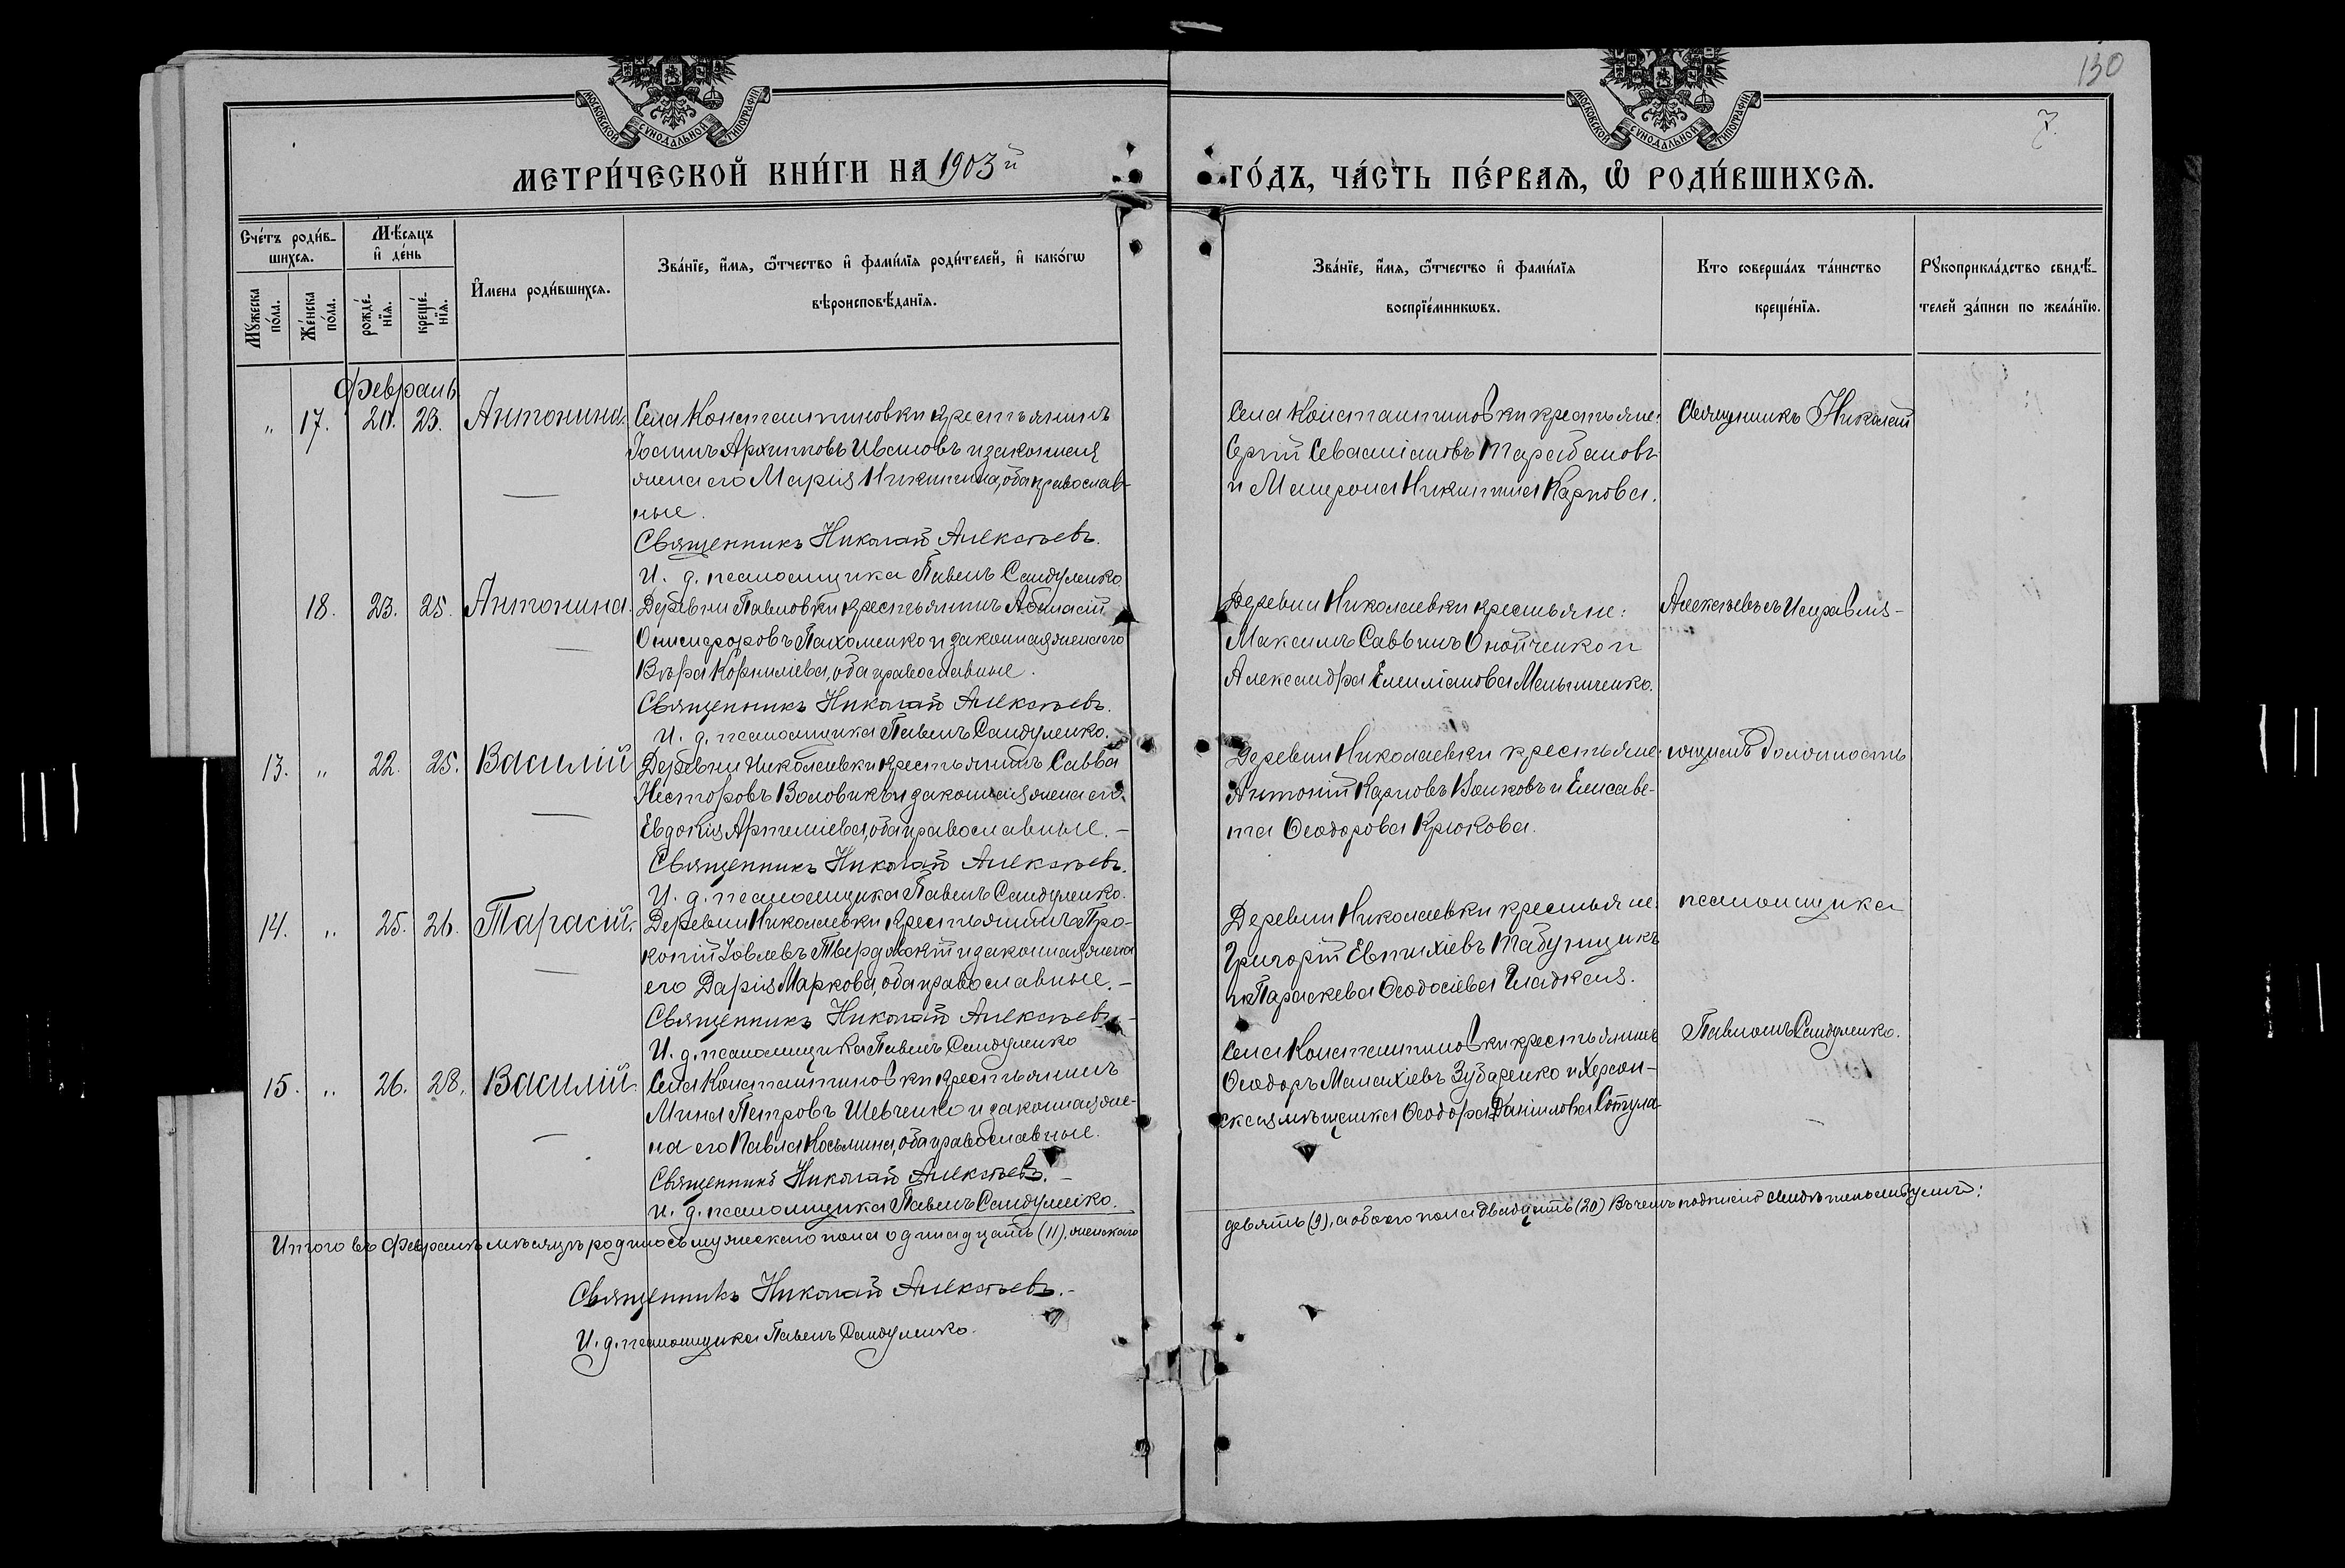 130
7.
МОСКОВСКОЙ СѴНОДАЛЬНОЙ ТИПОГРАФІИ
МОСКОВСКОЙ СѴНОДАЛЬНОЙ ТИПОГРАФІИ
МЕТРИ́ЧЕСКОЙ КНИ́ГИ НА 1903й
ГО́ДЪ, ЧА́СТЬ ПЕ́РВАѦ, Ѡ҆ РОДИ́ВШИХСѦ.
Сче́тъ роди́в-
шихсѧ.
Мѣ́сѧцъ
и҆ де́нь
Мꙋ́жеска по́ла.
Же́нска по́ла.
рожде́-нїѧ.
креще́-нїѧ.
И҆́мена роди́вшихсѧ.
Зва́нїе, и҆́мѧ, ѻ҆́тчество и҆ фами́лїѧ роди́телей, и҆ како́гѡ
вѣроисповѣ́данїѧ.
Зва́нїе, и҆́мѧ, ѻ҆́тчество и҆ фами́лїѧ
воспрїе́мникѡвъ.
Кто соверша́лъ та́инство
креще́нїѧ.
Рꙋкоприкла́дство свидѣ́-
телей за́писи по жела́нїю.
Февраль
„ 17. 20. 23. Антонина. Села Константиновки крестьянинъ
Іоаннъ Архиповъ Ивановъ и законная
жена его Марія Никитина, оба православ-
ные.
Священникъ Николай Алексѣевъ.
И. д. псаломщика Павелъ Сандуленко
Села Константиновки крестьяне:
Сергій Севастіановъ Тарабановъ
и Матрона Никитина Карпова.
Священникъ Николай
18. 23. 25. Антонина. Деревни Павловки крестьянинъ Аѳанасій
Онисифоровъ Пахоменко и законная жена его
Вѣра Корниліева, оба православные.
Священникъ Николай Алексѣевъ.
И. д. псаломщика Павелъ Сандуленко.
Деревни Николаевки крестьяне:
Максимъ Саввинъ Онойченко и
Александра Емиліанова
Алексѣевъ съ Исправля-
13. „ 22. 25. Василій Деревни Николаевки крестьянинъ Савва
Несторовъ Воловикъ и законная жена его
Евдокія Артеміева, оба православные.-
Священникъ Николай Алексѣевъ.
И. д. псаломщика Павелъ Сандуленко.
Деревни Николаевки крестьяне:
Антоній Карповъ Волковъ и Елисаве-
та Ѳеодорова Крюкова.
ющимъ должность
14. „ 25. 26. Тарасій. Деревни Николаевки крестьянинъ Про-
копій Іовлевъ и законная жена
его Дарія Маркова, оба православные.-
Священникъ Николай Алексѣевъ.-
И. д. псаломщика Павелъ Сандуленко
Деревни Николаевки крестьяне:
Григорій Евтихіевъ Табунщикъ
и Параскева Ѳеодосіева Гладкая.
псаломщика
15. „ 26. 28. Василій. Села Константиновки крестьянинъ
Мина Петровъ Шевченко и законная же-
на его Павла Косьмина, оба православные.
Священникъ Николай Алексѣевъ.-
И. д. псаломщика Павелъ Сандуленко.
Села Константиновки крестьянинъ
Ѳеодоръ Малахіевъ Зубаренко и Херсон-
ская мѣщанка Ѳеодора Даніилова
Павломъ Сандуленко.
Итого въ Февралѣ мѣсяцѣ родилось мужескаго пола одинадцать (11), женскаго
девять (9), а обоего пола двадцать (20) Въ чемъ подписью свидѣтельствуемъ:
Священникъ Николай Алексѣевъ.-
И. д. псаломщика Павелъ Сандуленко.